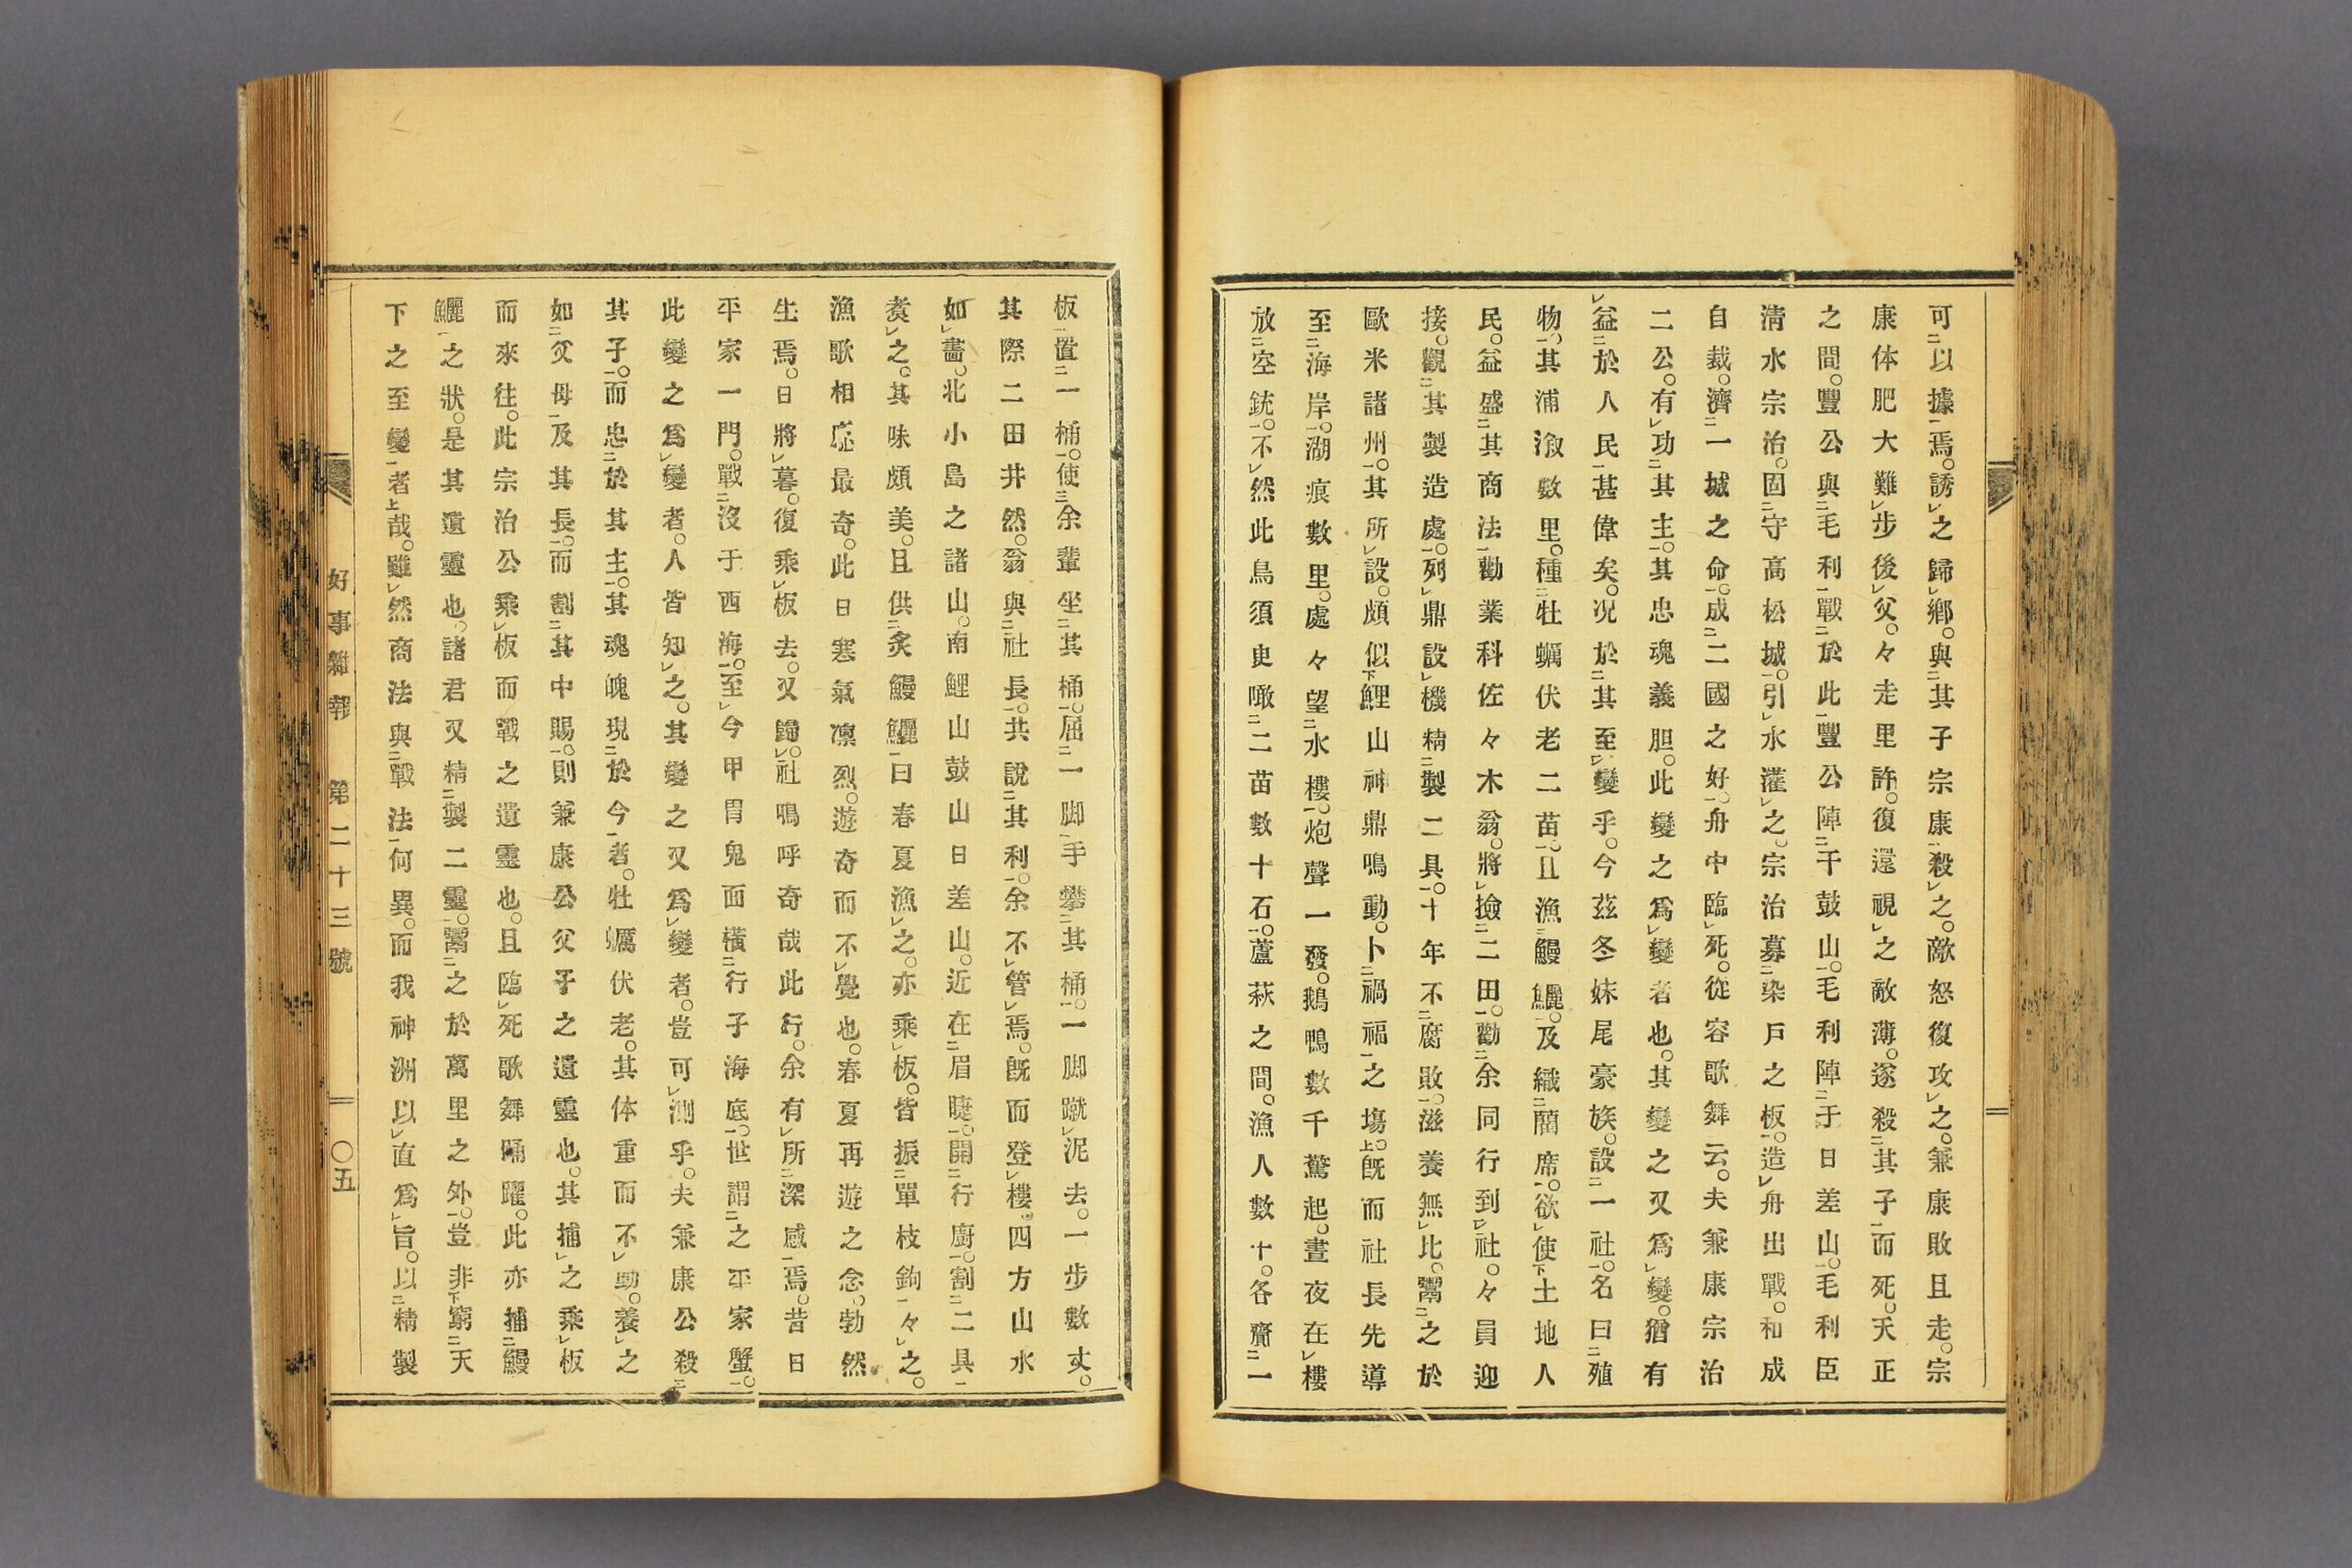 可㆓以據㆒焉。誘㆑之歸㆑鄕。與㆓其子宗康㆒殺㆑之。敵怒復攻㆑之。兼康敗且走。宗
康体肥大難㆑步後㆑父。々走里許。復還視㆑之敵薄。遂殺㆓其子㆒而死。天正
之間。豐公與㆓毛利㆒戰㆓於此㆒豐公陣㆓于鼓山㆒。毛利陣㆓于日差山㆒。毛利臣
淸水宗治。固㆓守高松城㆒。引㆑水灌㆑之。宗治募㆓染戶之板㆒。造㆑舟出戰。和成
自裁。濟㆓一城之命㆒。成㆓二國之好㆒。舟中臨㆑死。從容歌舞云。夫兼康宗治
二公。有㆑功㆓其主㆒。其忠魂義胆。此變之爲㆑變者也。其變之又爲㆑變。猶有
㆑益㆓於人民㆒甚偉矣。况於㆓其至㆑變乎。今茲冬妹尾豪族。設㆓一社㆒。名曰㆓殖
物㆒。其浦漵數里。種㆓牡蠣伏老二苗㆒。且漁㆓鰻鱺㆒。及織㆓藺席㆒。欲㆑使㆘土地人
民。益盛㆓其商法㆒勸業科佐々木翁。將㆑撿㆓二田㆒。勸㆓余同行到㆑社。々員迎
接。觀㆓其製造處㆒。列㆑鼎設㆑機精㆓製二具㆒。十年不㆓腐敗㆒。滋養無㆑比。鬻㆓之於
歐米諸州㆒。其所㆑設。頗似㆘鯉山神鼎鳴動。卜㆓禍福㆒之塲㆖。旣而社長先導
至㆓海岸㆒。湖痕數里。處々望㆓水樓㆒。炮聲一發。鵝鴨數千驚起。晝夜在㆑樓
放㆓空銃㆒。不㆑然此鳥須臾噉㆓二苗數十石㆒。蘆萩之間。漁人數十。各齎㆓一
板㆒置㆓一桶㆒。使㆔余輩坐㆓其桶㆒。屈㆓一脚㆒手攀㆓其桶㆒。一脚蹴㆑泥去。一步數丈。
其際二田井然。翁與㆓社長㆒。共說㆓其利㆒。余不㆑管焉。旣而登㆑樓。四方山水
如㆑畵。北小島之諸山。南鯉山鼓山日差山。近在㆓眉睫㆒。開㆓行廚㆒。割㆓二具㆒
煑㆑之。其味頗美。且供㆓炙鰻鱺㆒曰春夏漁㆑之。亦乘㆑板。皆振㆓單枝鉤㆒々㆑之。
漁歌相應最奇。此日寒氣凛烈。遊奇而不㆑覺也。春夏再遊之念。勃然
生焉。日將㆑暮。復乘㆑板去。又歸㆑社。嗚呼奇哉此行。余有㆑所㆓深感㆒焉。昔日
平家一門。戰㆓沒于西海㆒。至㆑今甲冑鬼面橫㆓行于海底㆒。世謂㆓之平家蟹㆒。
此變之爲㆑變者。人皆知㆑之。其變之又爲㆑變者。豈可㆑測乎。夫兼康公殺㆓
其子㆒。而忠㆓於其主㆒。其魂魄現㆓於今㆒者。牡蠣伏老。其体重而不㆑動。養㆑之
如㆓父母㆒及其長㆒。而割㆓其中賜㆒。則兼康公父子之遺靈也。其捕㆑之乘㆑板
而來往。此宗治公乘㆑板而戰之遺靈也。且臨㆑死歌舞踊躍。此亦捕㆓鰻
鱺㆒之狀。是其遺靈也。諸君又精㆓製二靈㆒。鬻㆓之於萬里之外㆒。豈非㆘窮㆓天
下之至變㆒者㆖哉。雖㆑然商法與㆓戰法㆒何異。而我神洲以㆑直爲㆑旨。以㆓精製
好事雜報　第二十三號　〇五